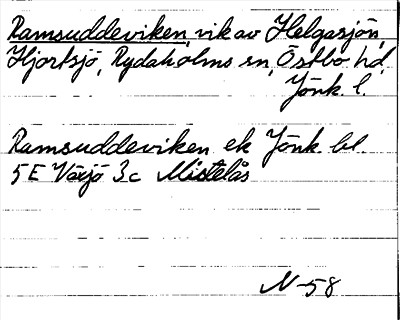 Ramsuddeviken, vik av Helgasjön,
Hjortsjö, Rydaholms sn, Östbo hd,
Jönk. l.
Ramsuddeviken ek Jönk. bl.
5E Växjö 3c Mistelås
N-58